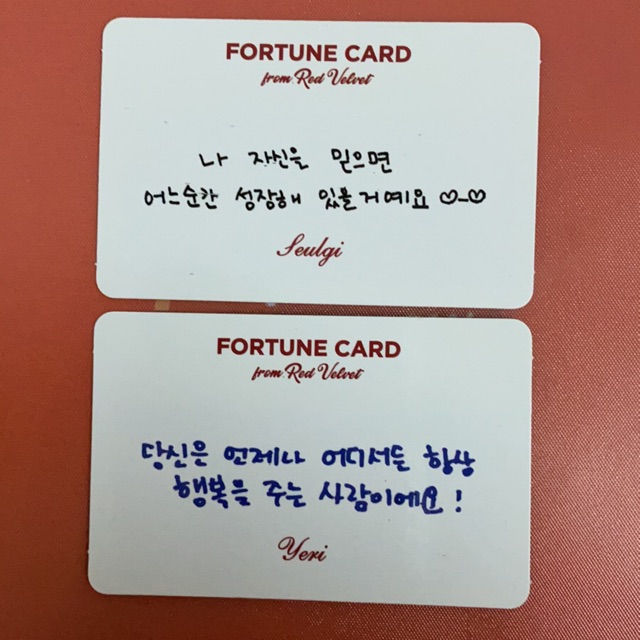 FORTUNE CARD
from Red Velvet
나 자신을 믿으면
어느순간 성장해 있을거예요 ♡_♡
Seulgi
FORTUNE CARD
from Red Velvet
당신은 언제나 어디서든 항상
행복을 주는 사람이에요!
Yeri